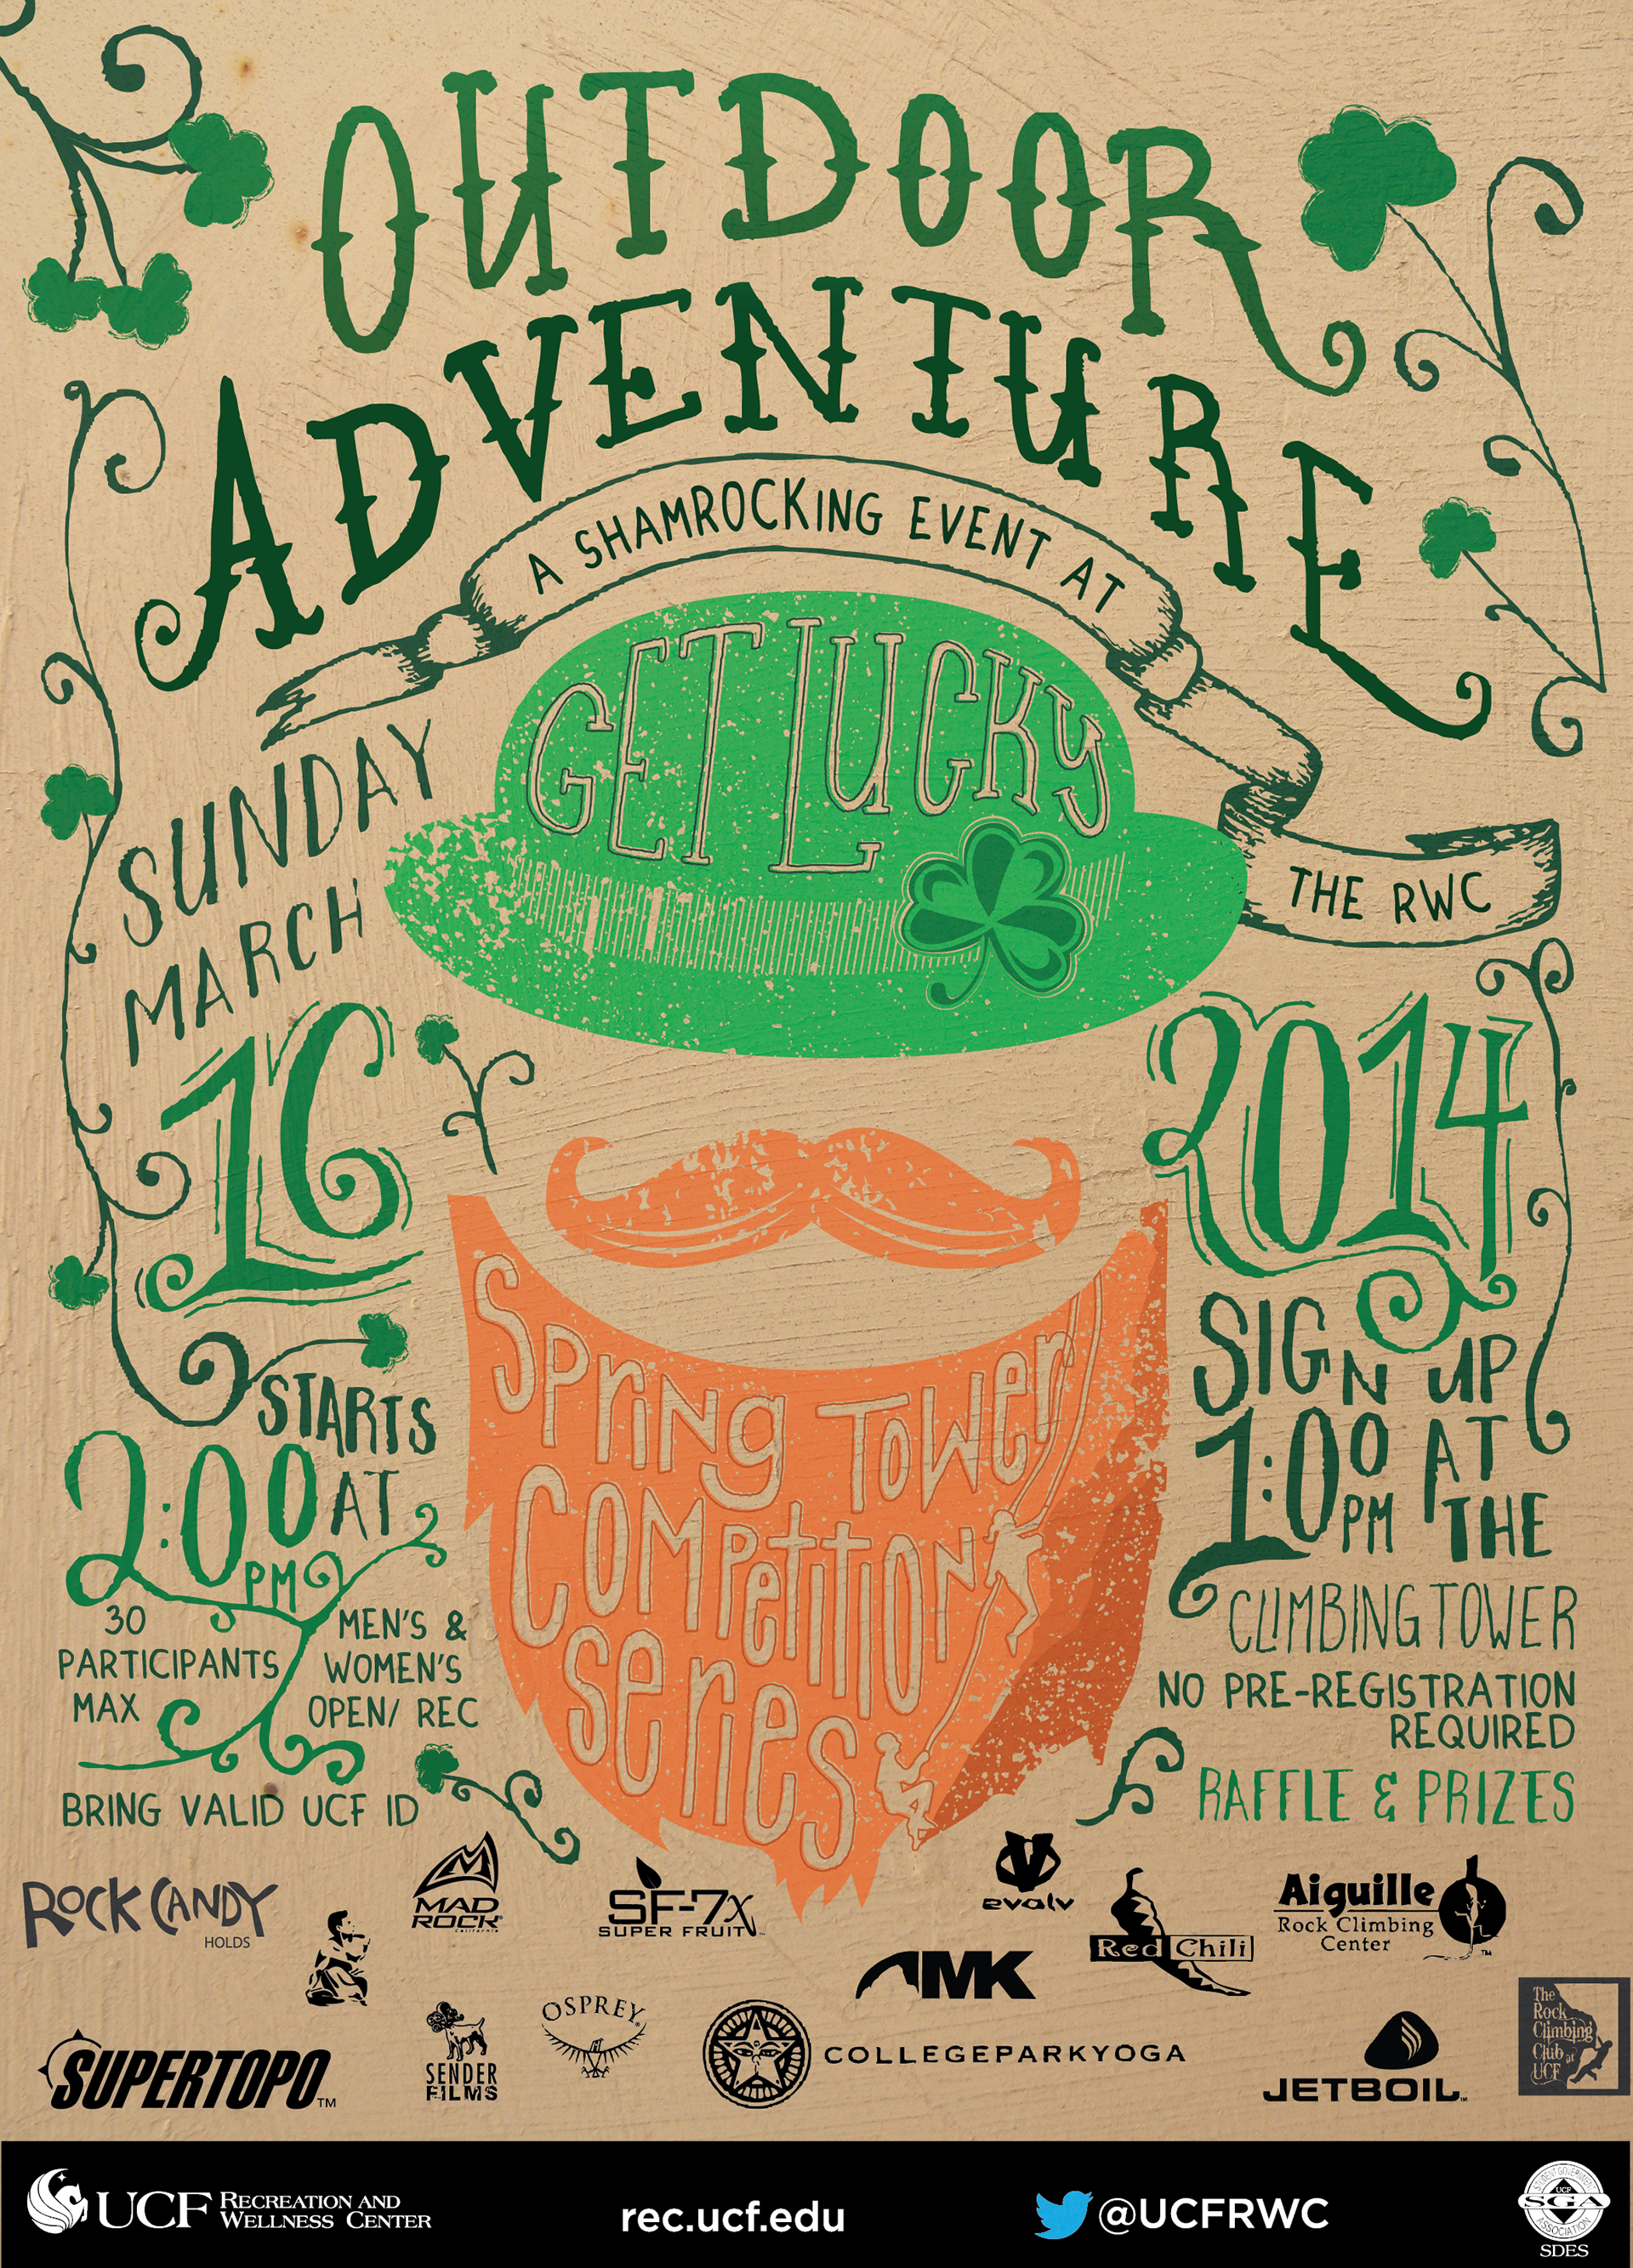 OUTDOOR
ADVENTURE
A SHAMROCKING EVENT AT
THE RWC
GET LUCKY
SUNDAY
MARCH
16
2014
Spring Tower
Competition
Series
STARTS
2:00 AT
PM
30
PARTICIPANTS
MAX
MEN'S &
WOMEN'S
OPEN/ REC
BRING VALID UCF ID
SIGN UP
1:00 AT
PM THE
CLIMBING TOWER
NO PRE-REGISTRATION
REQUIRED
RAFFLE & PRIZES
ROCK CANDY
HOLDS
MAD
ROCK
SF-7x
SUPER FRUIT
evolv
Red Chili
Aiguille
Rock Climbing
Center
TM
AMK
SUPERTOPO™
SENDER
FILMS
OSPREY
COLLEGEPARKYOGA
JETBOIL
The
Rock
Climbing
Club at
UCF
UCF RECREATION AND
WELLNESS CENTER
rec.ucf.edu
@UCFRWC
STUDENT GOVERNMENT
UCF
SGA
ASSOCIATION
SDES